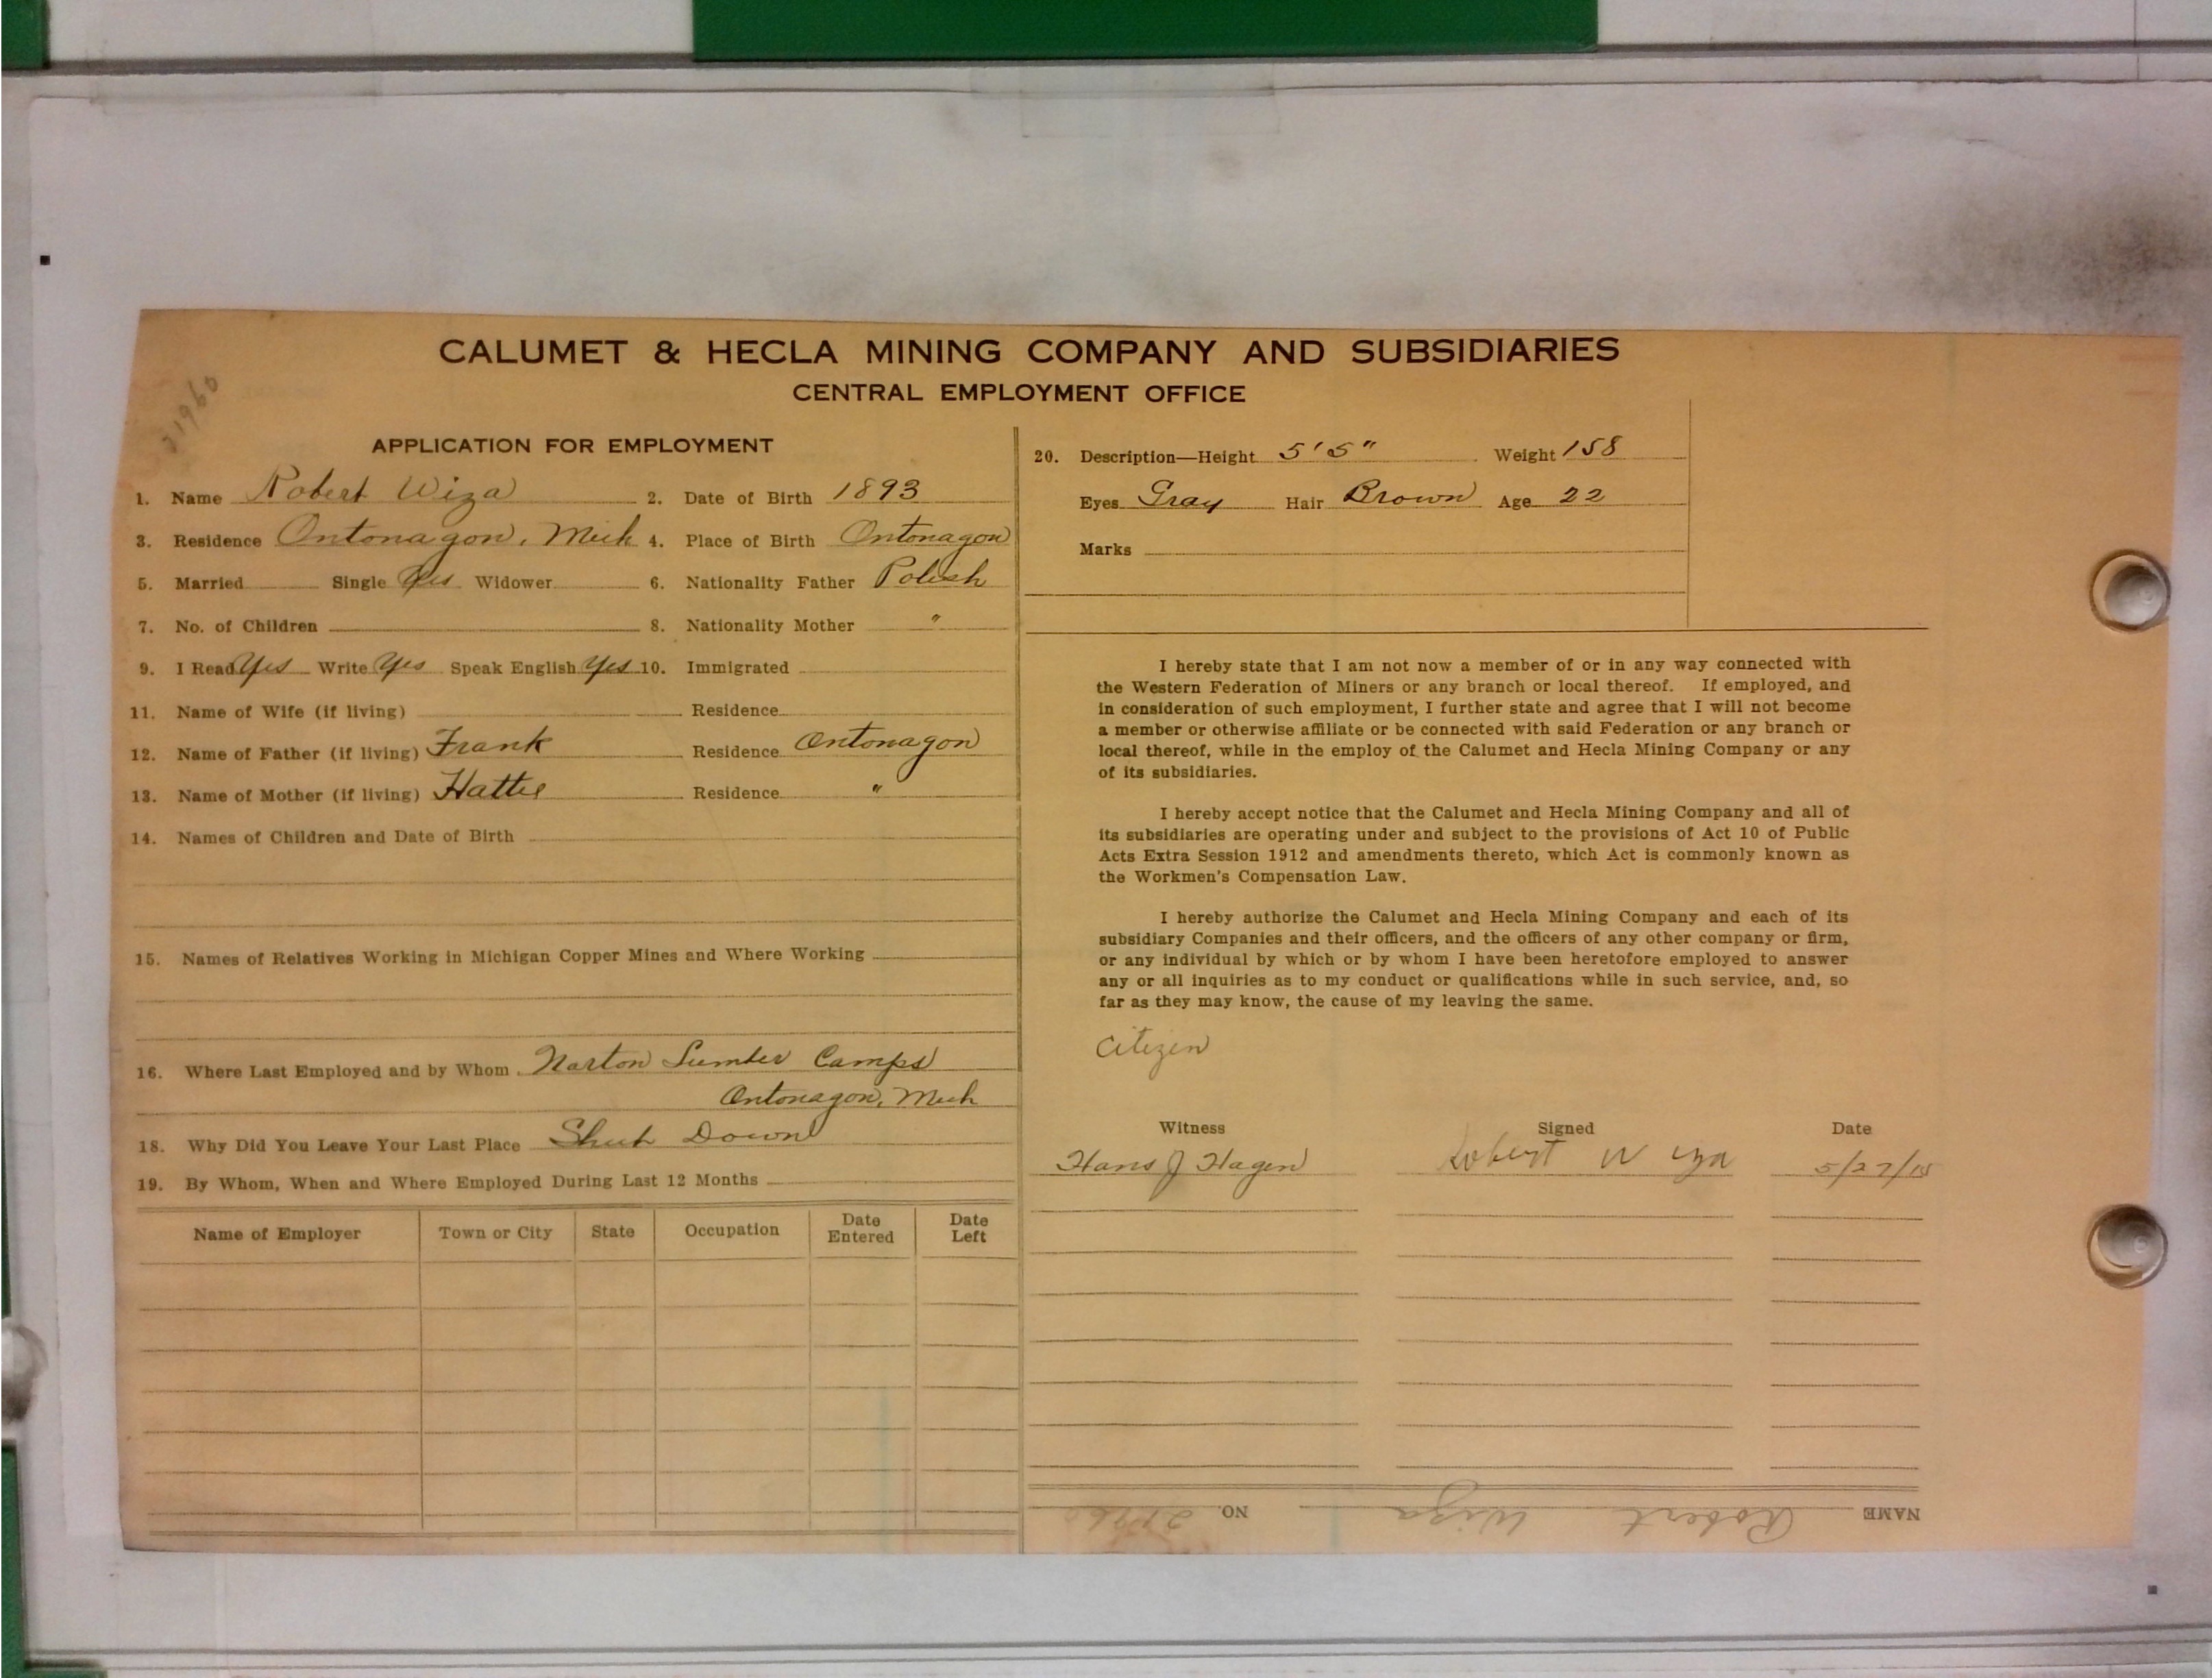 CALUMET & HECLA MINING COMPANY AND SUBSIDIARIES
CENTRAL EMPLOYMENT OFFICE
21960
APPLICATION FOR EMPLOYMENT
1. Name Robert Wiza 2. Date of Birth 1893
3. Residence Ontonagon, Mich 4. Place of Birth Ontonagon
5. Married Single Yes Widower 6. Nationality Father Polish
7. No. of Children 8. Nationality Mother "
9. I Read Yes Write Yes Speak English Yes 10. Immigrated
11. Name of Wife (if living) Residence
12. Name of Father (if living) Frank Residence Ontonagon
13. Name of Mother (if living) Hattie Residence "
14. Names of Children and Date of Birth
15. Names of Relatives Working in Michigan Copper Mines and Where Working
16. Where Last Employed and by Whom Norton Lumber Camps
Ontonagon, Mich
18. Why Did You Leave Your Last Place Shut Down
19. By Whom, When and Where Employed During Last 12 Months
Name of Employer Town or City State Occupation Date Entered Date Left
20. Description—Height 5'5" Weight 158
Eyes Gray Hair Brown Age 22
Marks
I hereby state that I am not now a member of or in any way connected with
the Western Federation of Miners or any branch or local thereof. If employed, and
in consideration of such employment, I further state and agree that I will not become
a member or otherwise affiliate or be connected with said Federation or any branch or
local thereof, while in the employ of the Calumet and Hecla Mining Company or any
of its subsidiaries.
I hereby accept notice that the Calumet and Hecla Mining Company and all of
its subsidiaries are operating under and subject to the provisions of Act 10 of Public
Acts Extra Session 1912 and amendments thereto, which Act is commonly known as
the Workmen's Compensation Law.
I hereby authorize the Calumet and Hecla Mining Company and each of its
subsidiary Companies and their officers, and the officers of any other company or firm,
or any individual by which or by whom I have been heretofore employed to answer
any or all inquiries as to my conduct or qualifications while in such service, and, so
far as they may know, the cause of my leaving the same.
Citizen
Witness Signed Date
Hans J Hagen Robert Wiza 5/27/15
NAME Robert Wiza NO. 21960